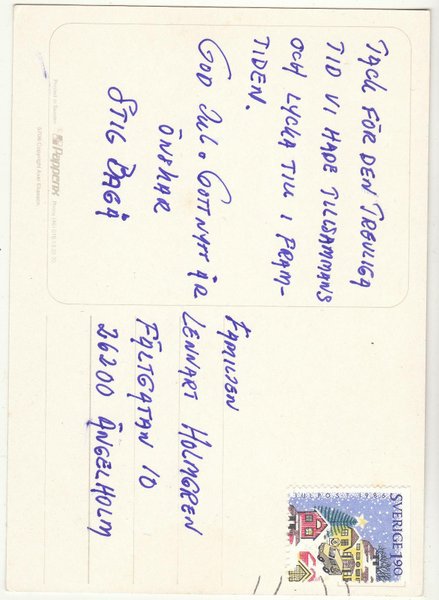 TACK FÖR DEN TREVLIGA
TID VI HADE TILLSAMMANS
OCH LYCKA TILL I FRAM-
TIDEN.
GOD JUL o GOTT NYTT ÅR
ÖNSKAR
STIG BAGÅ
Printed in Sweden
Pepperox
FAMILJEN
LENNART HOLMGREN
FÄLTGATAN 10
26200 ÄNGELHOLM
JULPOST 1986
SVERIGE 190